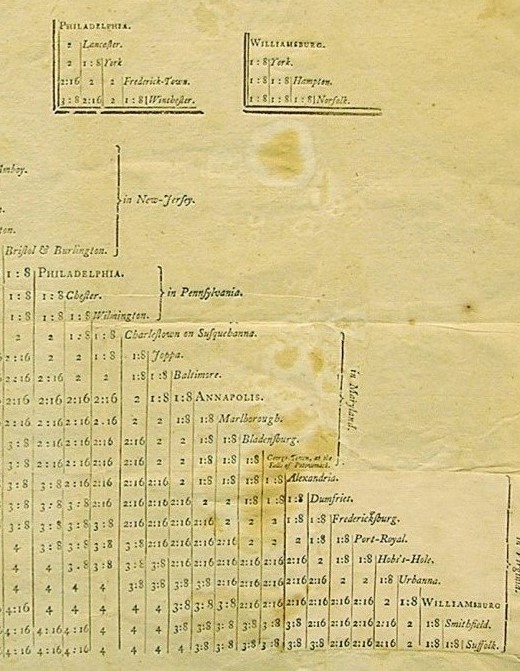 PHILADELPHIA.
2 Lancaster.
2 1:8 York
2:16 2 2 Frederick-Town.
3:8 2:16 2 1:8 Winchester.
WILLIAMSBURG.
1:8 York.
1:8 1:8 Hampton.
1:8 1:8 1:8 Norfolk.
in New-Jersey.
Bristol & Burlington.
1:8 PHILADELPHIA.
1:8 1:8 Chester.
in Pennsylvania.
1:8 1:8 1:8 Wilmington.
2 2 1:8 1:8 Charlestown on Susquehanna.
2:16 2 2 1:8 1:8 Joppa.
2:16 2:16 2 2 1:8 1:8 Baltimore.
2:16 2:16 2:16 2:16 2 1:8 1:8 ANNAPOLIS.
in Maryland.
2:16 2:16 2:16 2:16 2 2 1:8 1:8 Marlborough.
3:8 2:16 2:16 2:16 2:16 2 2 1:8 1:8 Bladensburg.
3:8 2:16 2:16 2:16 2:16 2 2 1:8 1:8 1:8 George-Town, at the
Falls of Potowmack.
3:8 3:8 2:16 2:16 2:16 2:16 2 1:8 1:8 1:8 1:8 Alexandria.
3:8 3:8 3:8 2:16 2:16 2:16 2:16 2 2 1:8 1:8 1:8 Dumfries.
3:8 3:8 3:8 3:8 2:16 2:16 2:16 2:16 2 2 2 1:8 1:8 Fredericksburg.
4 3:8 3:8 3:8 3:8 2:16 2:16 2:16 2:16 2 2 2 1:8 1:8 Port-Royal.
in Virginia.
4 4 3:8 3:8 3:8 3:8 2:16 2:16 2:16 2:16 2:16 2:16 2 2 1:8 1:8 Hobb's-Hole.
4 4 4 4 3:8 3:8 3:8 2:16 2:16 2:16 2:16 2:16 2:16 2 2 1:8 Urbanna.
4:16 4 4 4 4 3:8 3:8 3:8 2:16 2:16 2:16 2:16 2:16 2:16 2:16 2 1:8 WILLIAMSBURG
4:16 4:16 4:16 4 4 3:8 3:8 3:8 3:8 3:8 3:8 3:8 2:16 2:16 2:16 2 2 1:8 Smithfield.
4:16 4:16 4:16 4 4 4 3:8 3:8 3:8 3:8 3:8 3:8 3:8 2:16 2:16 2:16 2 1:8 1:8 Suffolk.